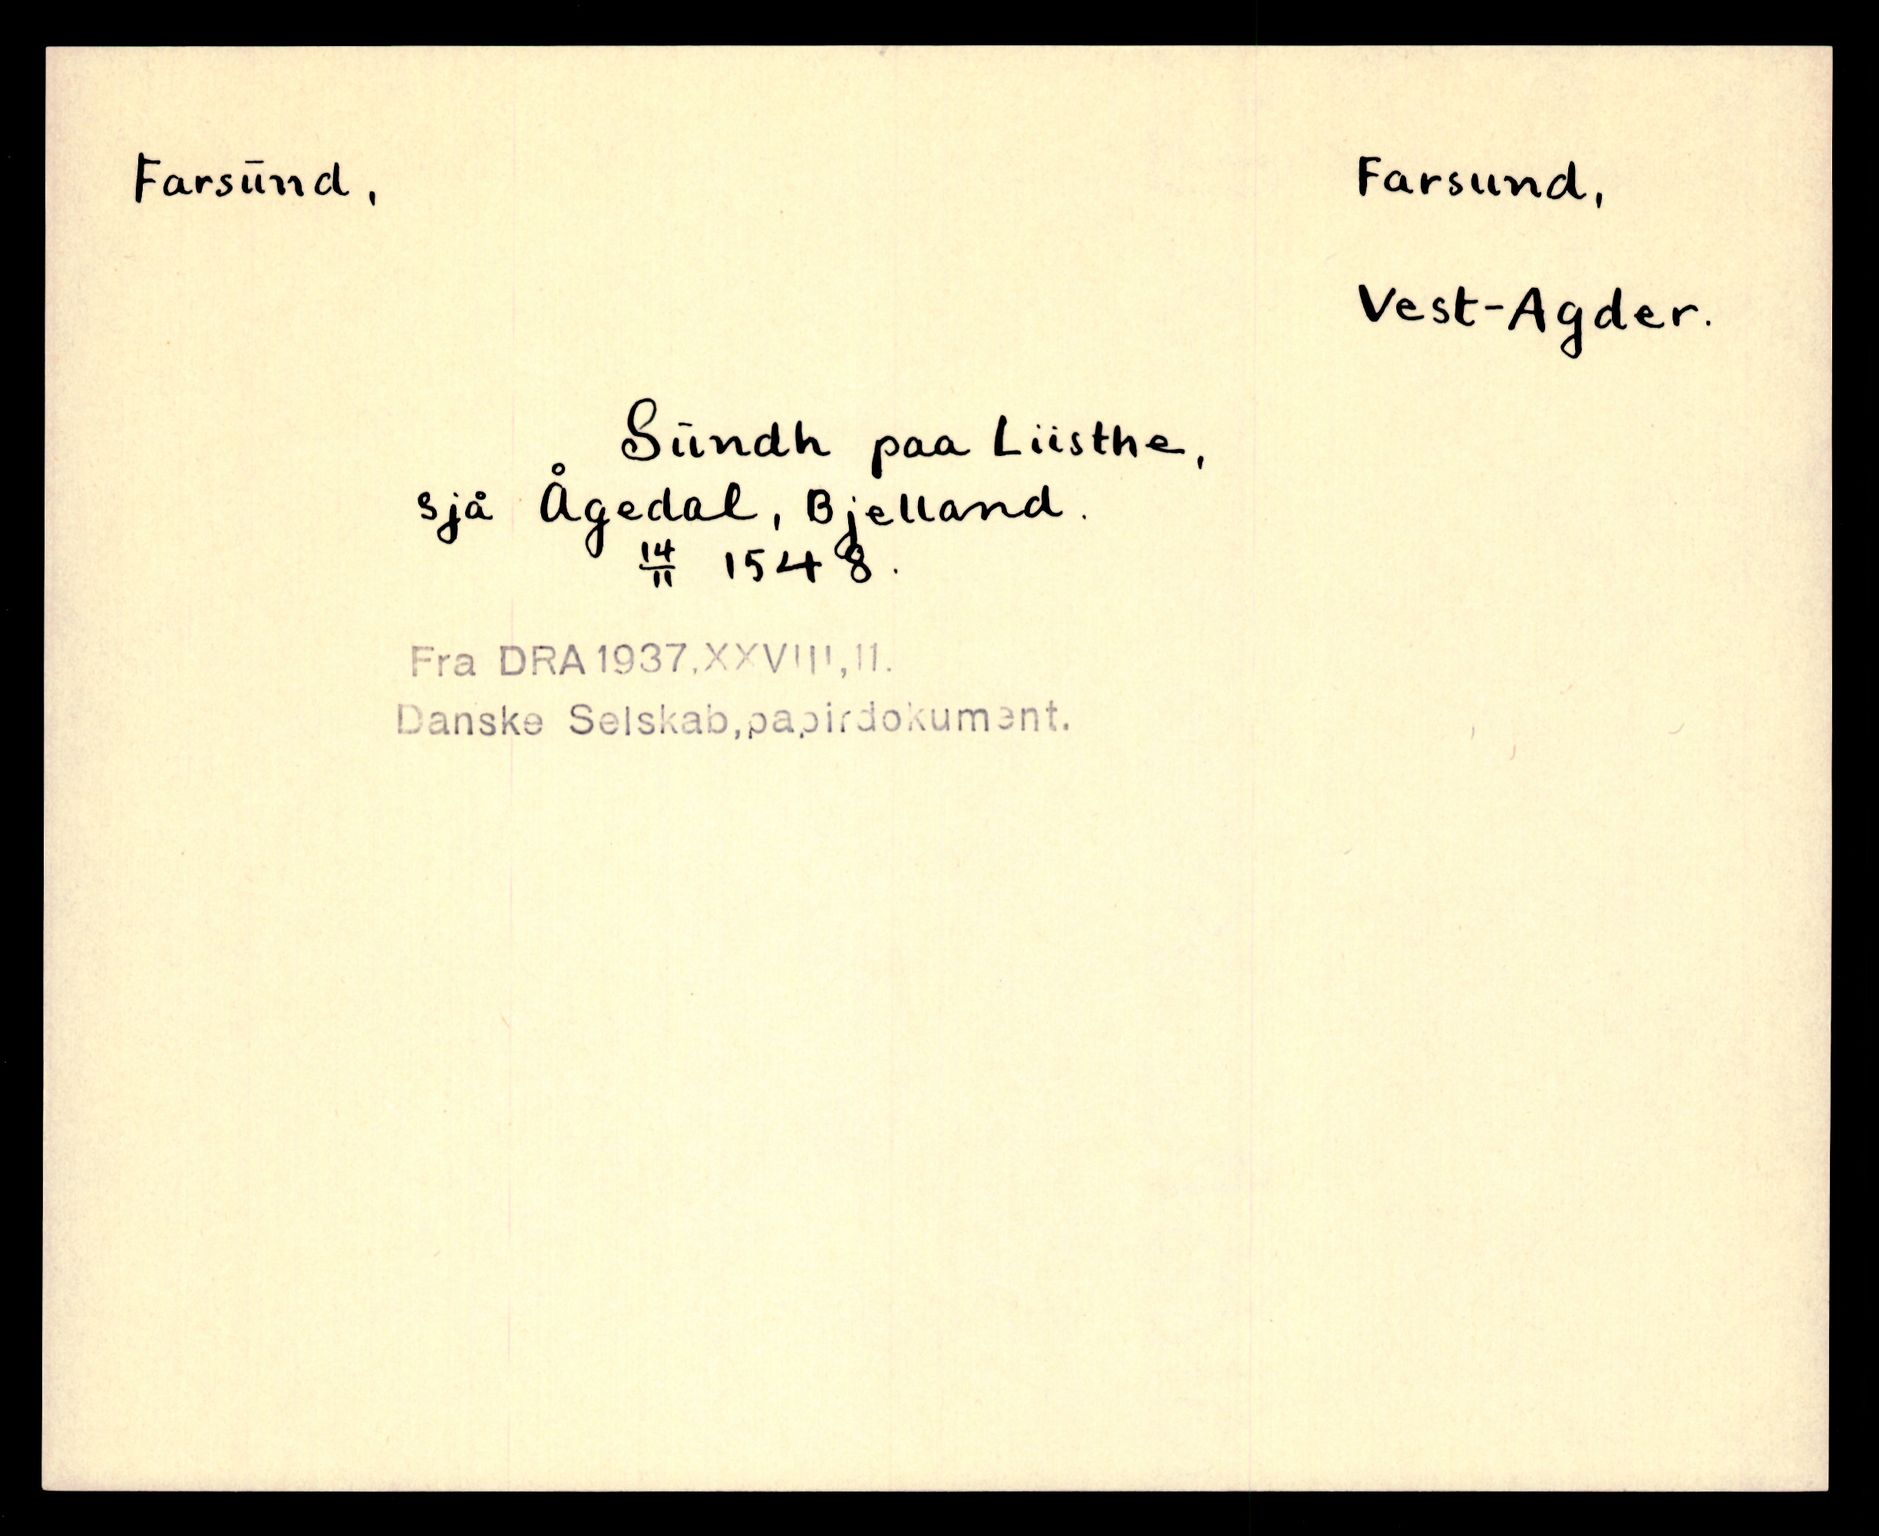 Farsūnd,
Farsund,
Vest-Agder.
Sūndh paa Liisthe,
sjå Ågedal, Bjelland.
14/11 1548.
Fra DRA 1937.XXVIII,II.
Danske Selskab,papirdokument.